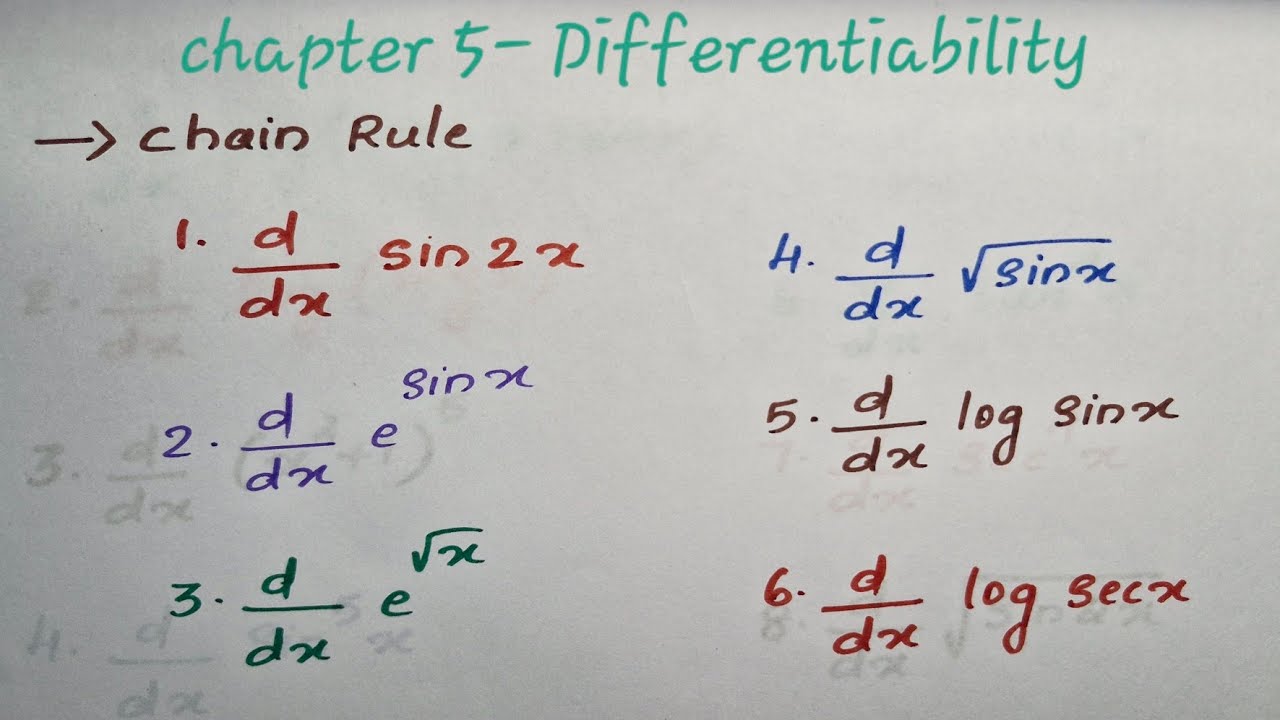 chapter 5- Differentiability
→ Chain Rule
1. d/dx sin 2x
2. d/dx e^sinx
3. d/dx e^√x
4. d/dx √sinx
5. d/dx log sinx
6. d/dx log secx